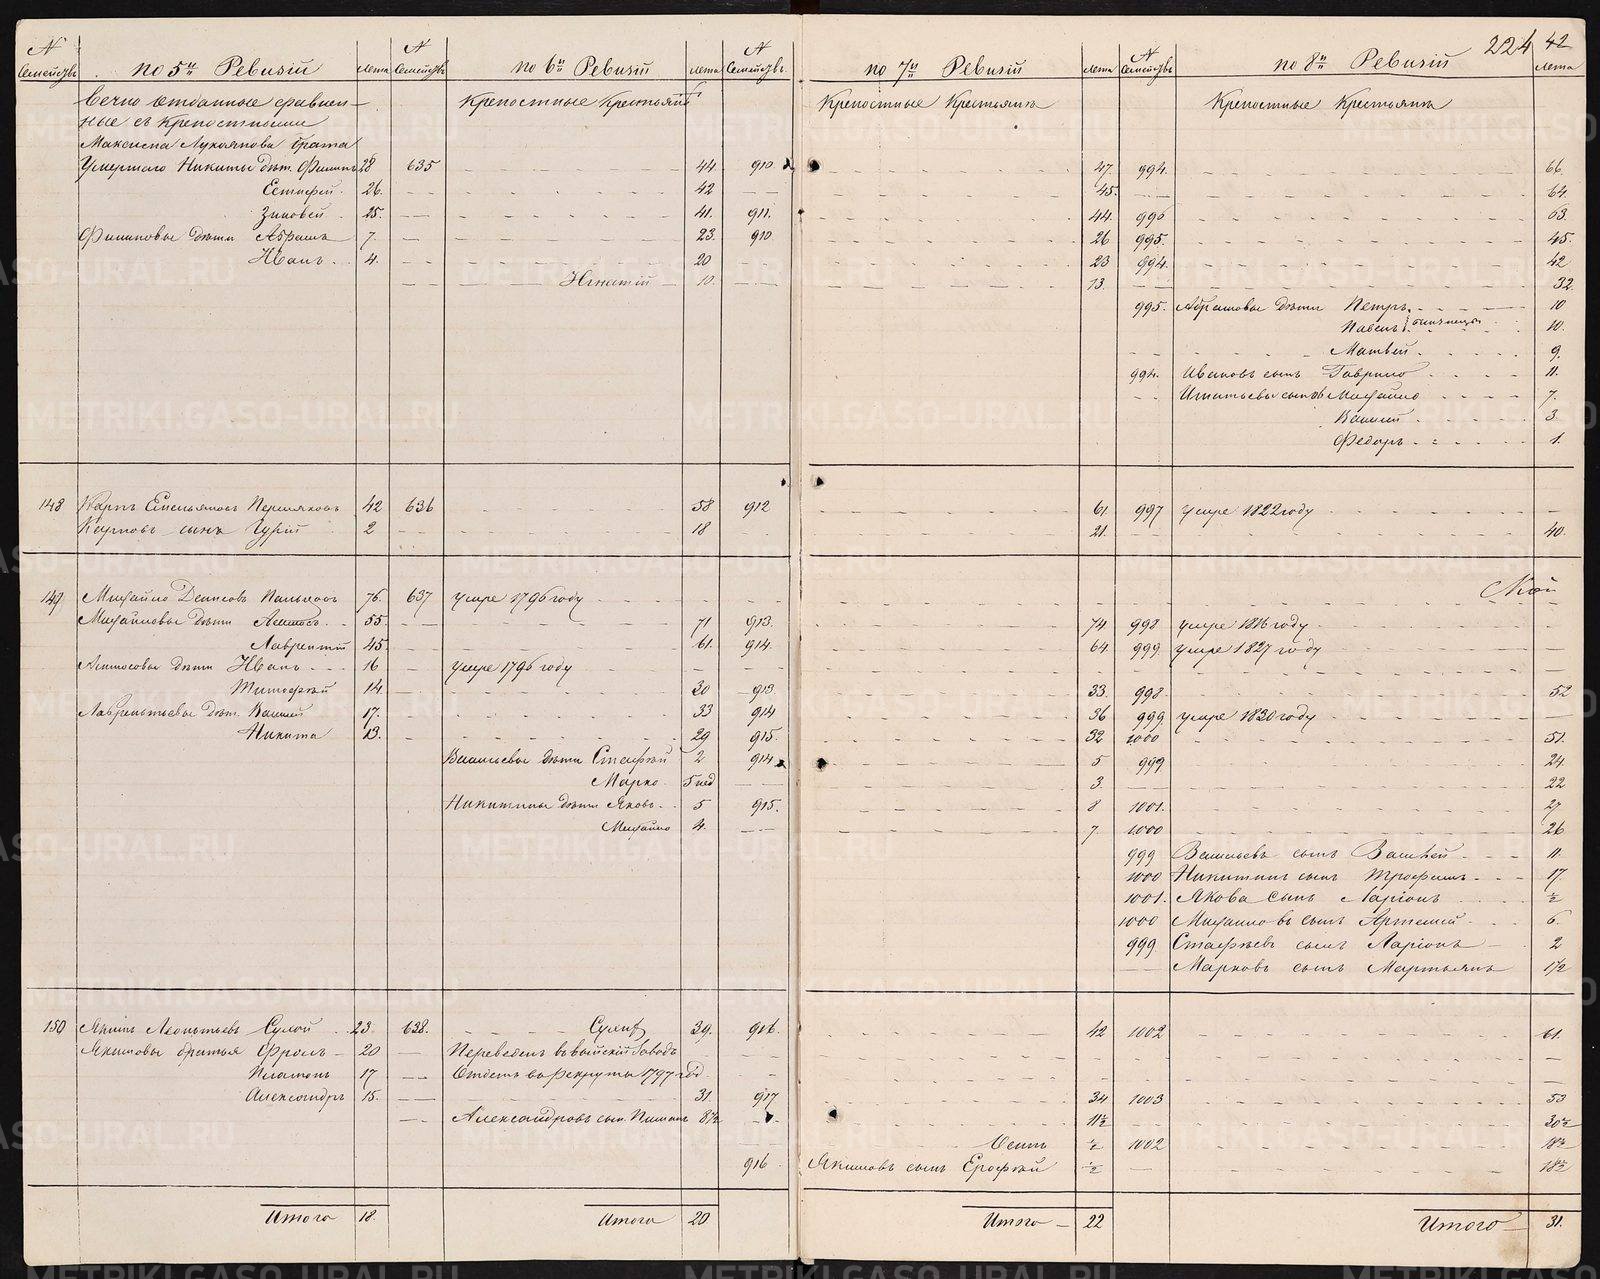 224 42
№ Семействъ по 5й Ревизiи Лета № Семействъ по 6й Ревизiи Лета № Семействъ по 7й Ревизiи Лета № Семействъ по 8й Ревизiи Лета
Вечно отданные сравнен- Крепостные Крестьяня Крепостные Крестьяня Крепостные Крестьяня
ные съ Крепостными
Максима Лукоянова брата
Умершаго Никиты дѣт. Филипъ 28 635 44 910 47 994 66
Естифей 26 42 45 64
Зиновей 25 41 911 44 996 63
Филиповы дѣти Абрамъ 7 23 910 26 995 45
Иванъ 4 20 23 994 42
Игнатiй 10 13 32
995 Абрамовы дѣти Петръ 10
Павелъ близнецы 10
Матвей 9
994 Ивановъ сынъ Гаврило 11
Игнатьевы сыновья Михайло 7
Василей 3
Федоръ 1
148 Карпъ Емельяновъ Пермяковъ 42 636 58 912 61 997 умре 1822 году
Карповъ сынъ Гурiй 2 18 21 40
149 Михайло Денисовъ 76 637 умре 1796 году
Михайловы дѣти 55 71 913 74 998 умре 1816 году
Лаврентiй 45 61 914 64 999 умре 1827 году
дѣти Иванъ 16 умре 1796 году
Тимофей 14 30 913 33 998 52
Лаврентьевы дѣт. Василей 17 33 914 36 999 умре 1830 году
Никита 13 29 915 32 1000 51
Васильевы дѣти Стафѣй 2 914 5 999 24
Марко 5 нед 3 22
Никитины дѣти Яковъ 5 915 8 1001 27
Михайло 4 7 1000 26
999 Васильевъ сынъ 11
1000 Никитинъ сынъ Трофимъ 17
1001 Якова сынъ Ларiонъ ½
1000 Михайловъ сынъ Артемей 6
999 Стафѣевъ сынъ Ларiонъ 2
Марковъ сынъ Мартьянъ 1½
150 Якимъ Леонтьевъ Сулой 23 638 39 916 42 1002 61
Якимовы братья Фролъ 20 Переведенъ въ Выйскiй Заводъ
Платонъ 17 Отданъ въ Рекруты 1797 год
Александръ 15 31 917 34 1003 53
Александровъ сын. 8½ 11½ 30½
Осипъ ½ 1002 18½
916 Якимовъ сынъ Ерофѣй ½ 18½
Итого 18 Итого 20 Итого 22 Итого 31
METRIKI.GASO-URAL.RU